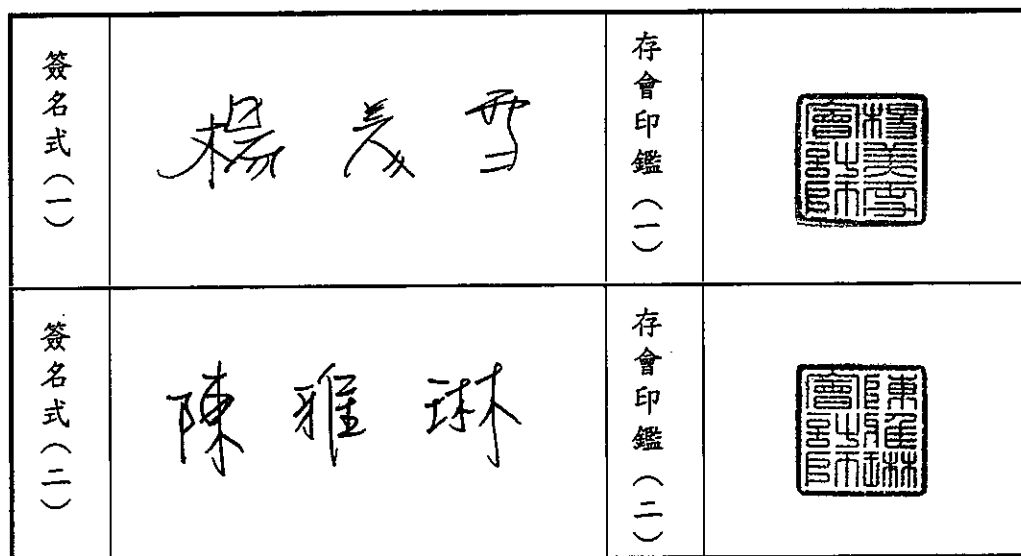 簽名式(一)
楊美雪
存會印鑑(一)
楊美雪會計師
簽名式(二)
陳雅琳
存會印鑑(二)
陳雅琳會計師